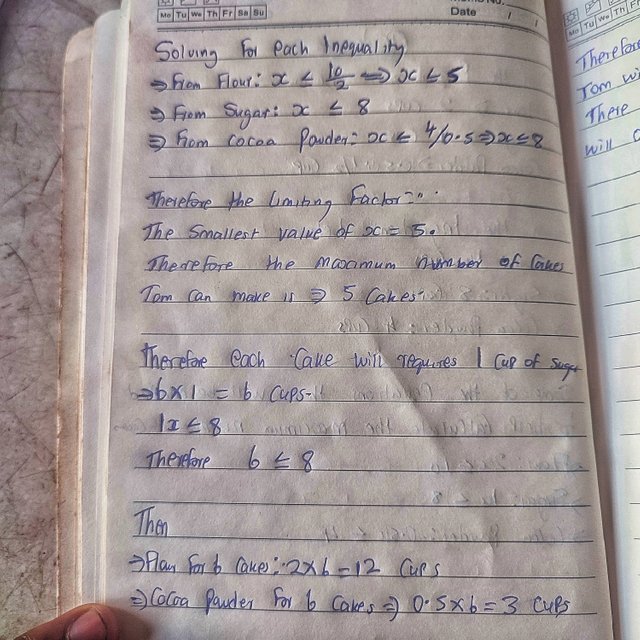 Mo Tu We Th Fr Sa Su
Date / /
Solving For each Inequality
⇒ From Flour: x ≤ 10/2 ⇒ x ≤ 5
⇒ From Sugar: x ≤ 8
⇒ From cocoa Powder: x ≤ 4/0.5 ⇒ x ≤ 8
Therefore the Limiting Factor:
The Smallest value of x = 5.
Therefore the maximum number of Cakes
Tom can make is ⇒ 5 Cakes.
Therefore each Cake will requires 1 Cup of Sugar
⇒ 6 x 1 = 6 Cups
1x ≤ 8
Therefore 6 ≤ 8
Then
⇒ For 6 Cakes: 2x6 = 12 Cups
⇒ Cocoa Powder for 6 Cakes ⇒ 0.5 x 6 = 3 Cups
Mo Tu We Th Fr
Therefore
Tom wi
There
will